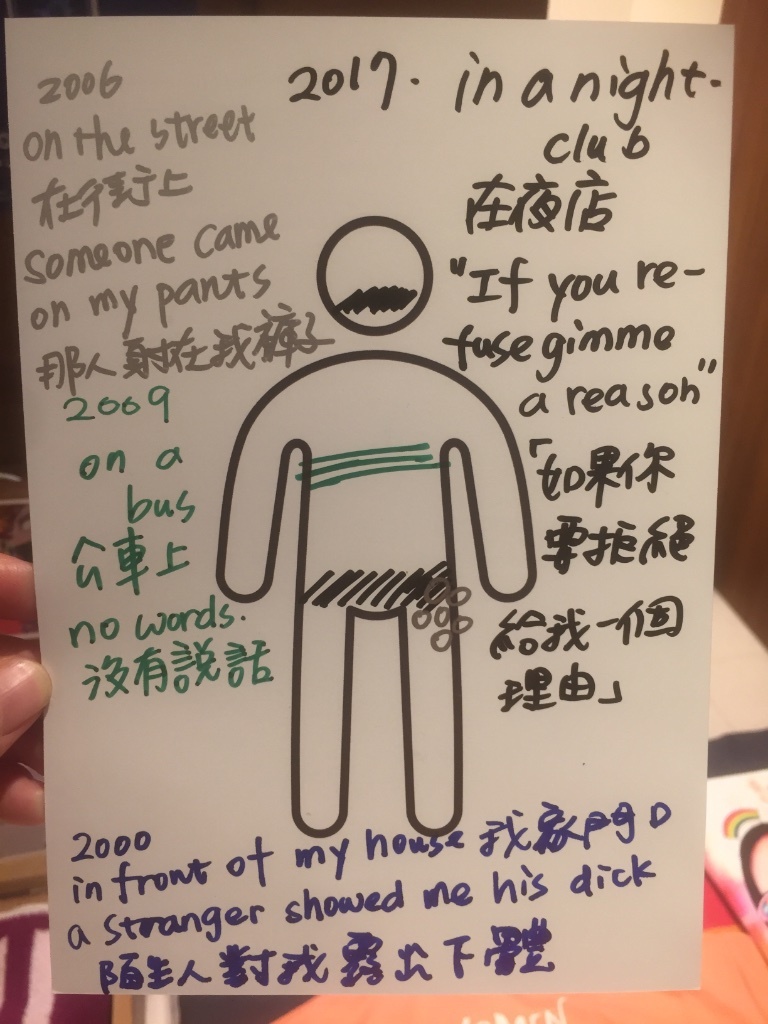 2006
on the street
在街上
someone came
on my pants
那人射在我褲子
2009
on a
bus
公車上
no words.
沒有說話
2017. in a night-
club
在夜店
"If you re-
fuse gimme
a reason"
「如果你
要拒絕
給我一個
理由」
2000
in front of my house 我家門口
a stranger showed me his dick
陌生人對我露出下體